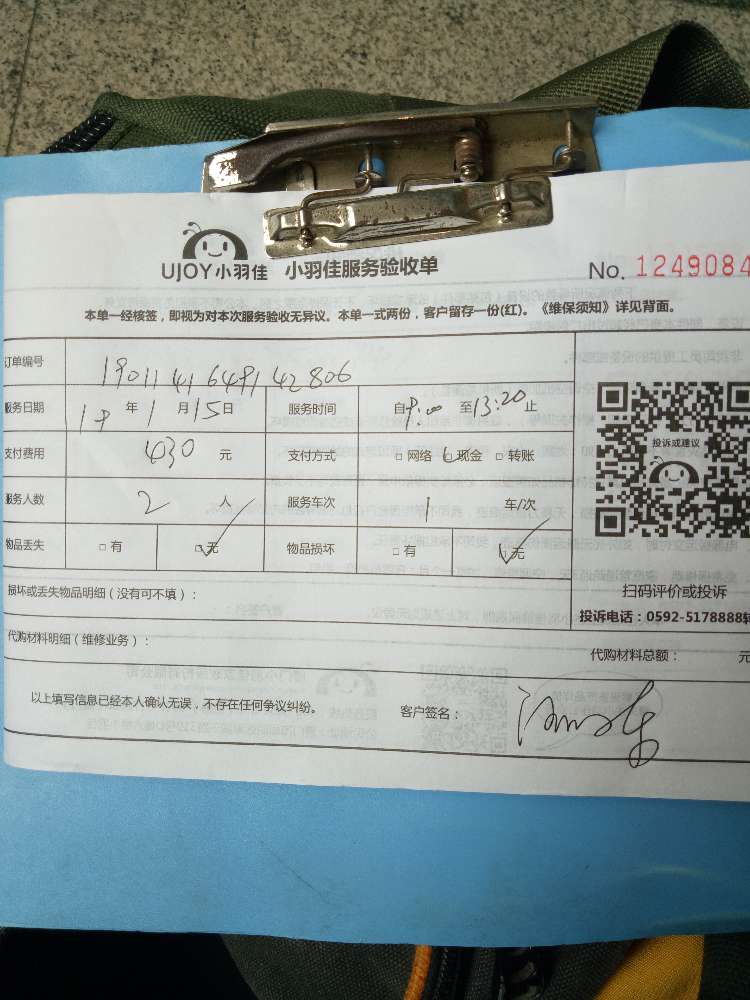 UJOY小羽佳 小羽佳服务验收单 No. 1249084
本单一经核签，即视为对本次服务验收无异议。本单一式两份，客户留存一份(红)。《维保须知》详见背面。
订单编号
服务日期 19 年 1 月 15 日 服务时间 自9:00 至13:20止
支付费用 430 元 支付方式 □ 网络 □ 现金 □ 转账
服务人数 2 人 服务车次 1 车/次
物品丢失 □ 有 □ 无 物品损坏 □ 有 □ 无
投诉或建议
损坏或丢失物品明细（没有可不填）：
扫码评价或投诉
投诉电话：0592-5178888转
代购材料明细（维修业务）：
代购材料总额： 元
以上填写信息已经本人确认无误，不存在任何争议纠纷。 客户签名：